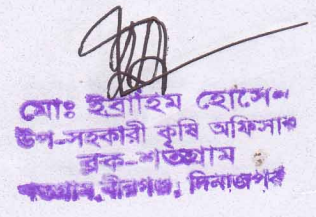 মোঃ ইব্রাহিম হোসেন
উপ-সহকারী কৃষি অফিসার
ব্লক-শতগ্রাম
শতগ্রাম, বীরগঞ্জ, দিনাজপুর